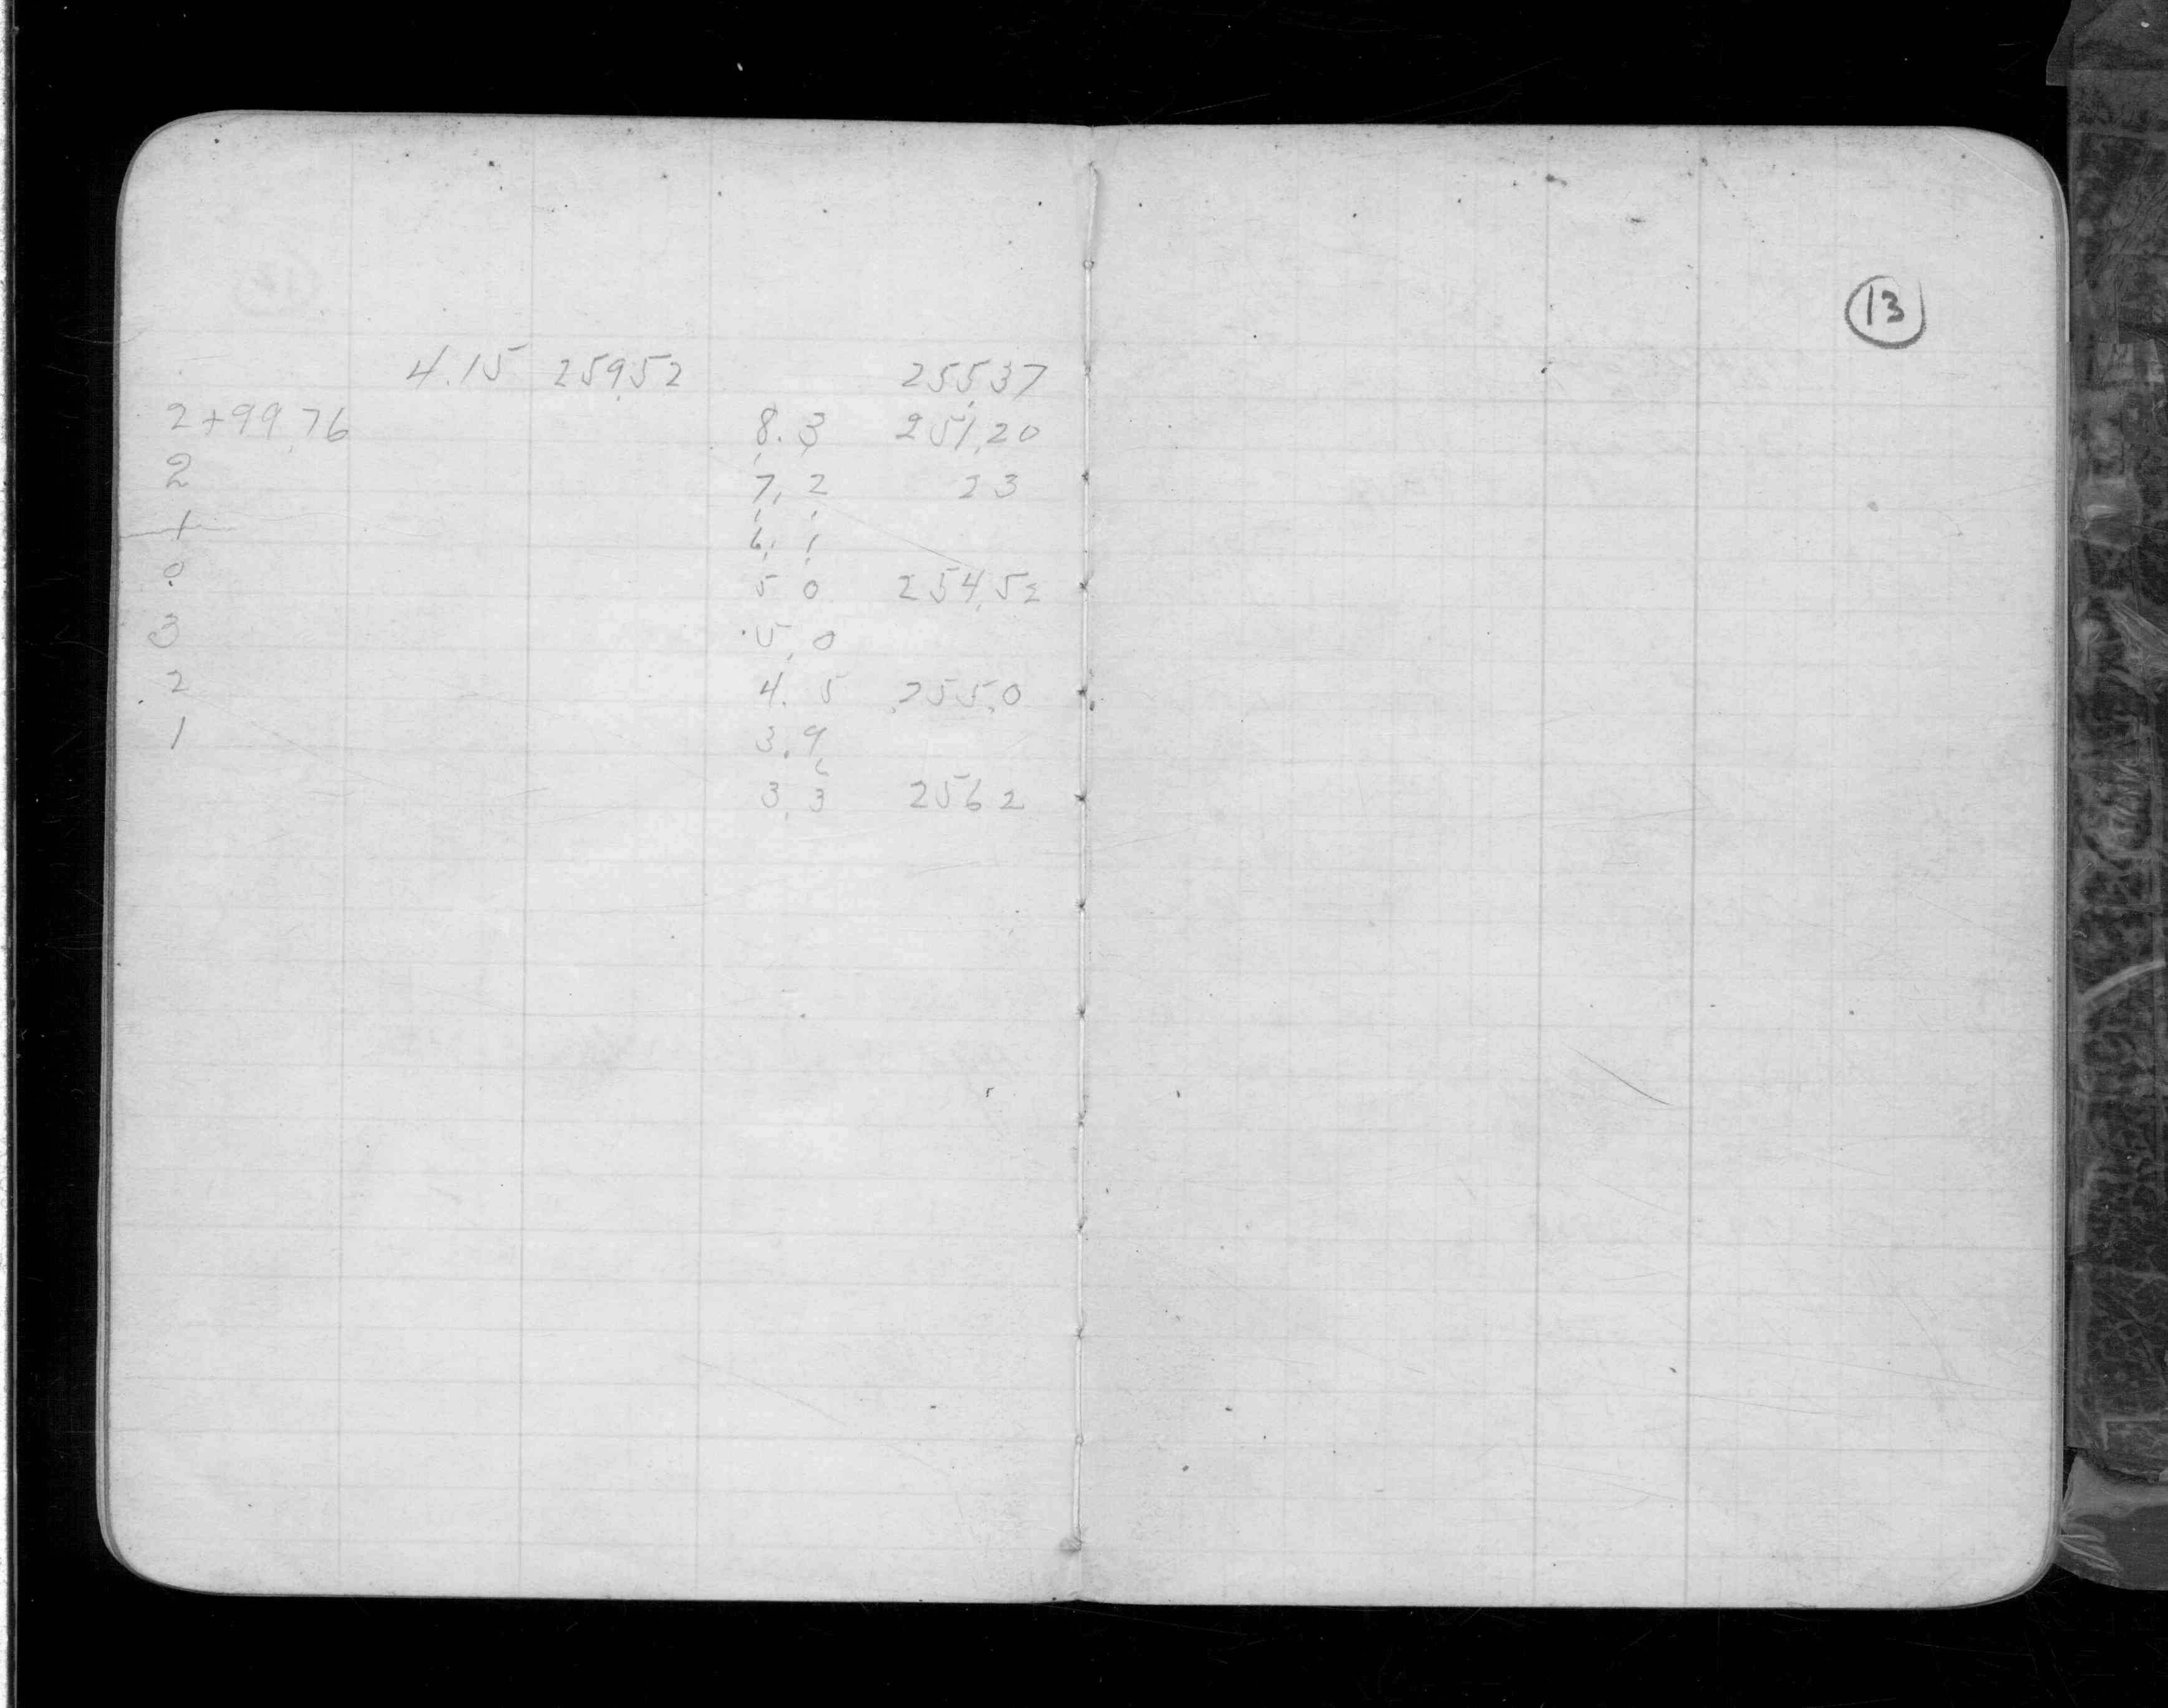 13
4.15 259.52 255.37
2+99.76 8.3 251.20
2 7.2 23
1 6.1
0 5 0 254.52
3 5.0
2 4.5 255.0
1 3.9
3.3 256 2